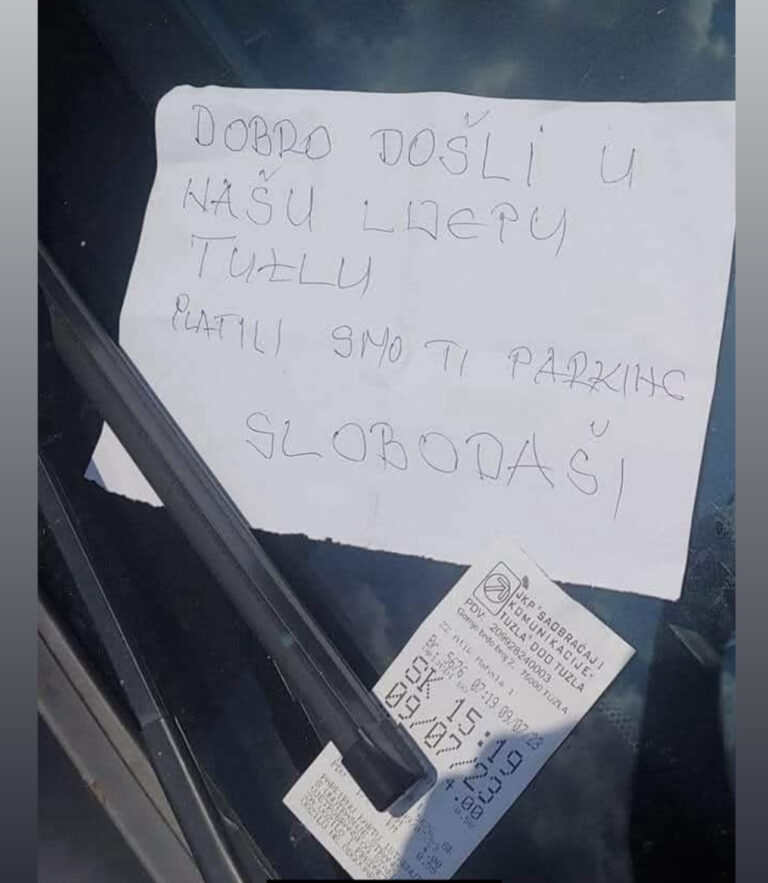 DOBRO DOŠLI U
NAŠU LIJEPU
TUZLU
PLATILI SMO TI PARKING
SLOBODAŠI
JKP "SAOBRAĆAJ I
KOMUNIKACIJE-
TUZLA" DOO TUZLA
PDV: 209928240003
Gornje brdo broj 2 - 75000 TUZLA
Br. 5626, 07:19 09/07/23
SK 15:19
09/07/23
4.00